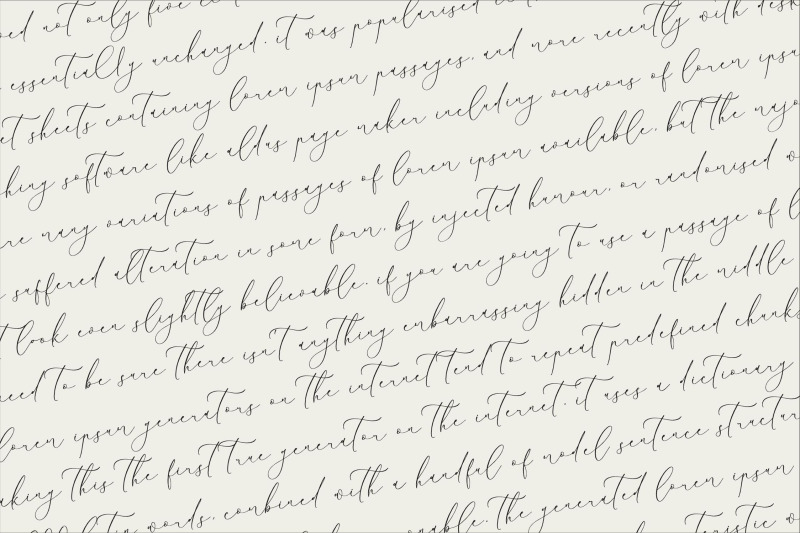 not only five
essentially unchanged. it was popularised
sheets containing lorem ipsum passages, and more recently with desk
king software like aldus page maker including versions of lorem ipsu
re many variations of passages of lorem ipsum available, but the majo
suffered alteration in some form, by injected humour, or randomised w
t look even slightly believable. if you are going to use a passage of l
eed to be sure there isn't anything embarrassing hidden in the middle
lorem ipsum generators on the internet tend to repeat predefined chunks
aking this the first true generator on the internet. it uses a dictionary
words, combined with a handful of model sentence structur
onable. the generated lorem ipsum
teristic w